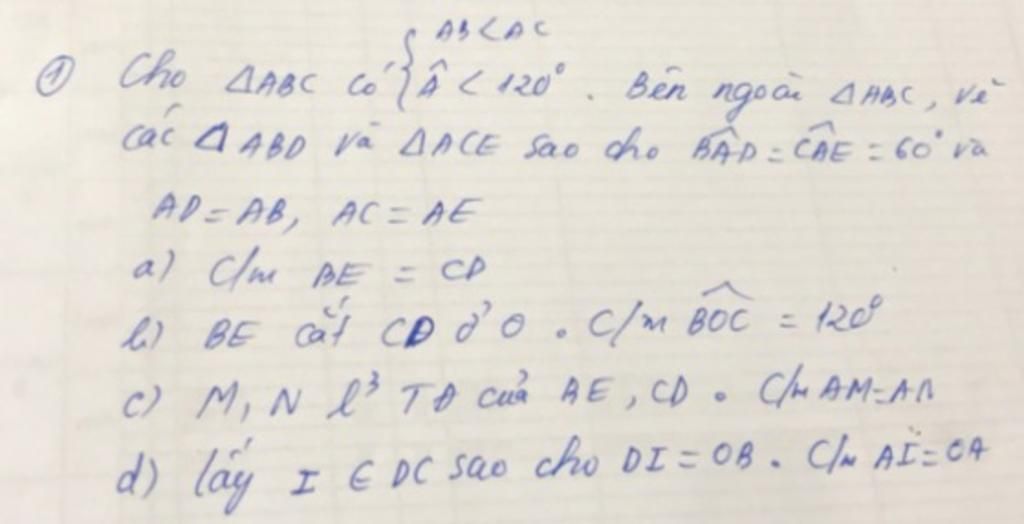 ① Cho ΔABC có { AB < AC
Â < 120° . Bên ngoài ΔABC, vẽ
các ΔABD và ΔACE sao cho BÂD = CÂE = 60° và
AD = AB, AC = AE
a) C/m BE = CD
b) BE cắt CD ở O . C/m BOC = 120°
c) M, N l³ TĐ của BE, CD . C/m AM = AN
d) lấy I ∈ DC sao cho DI = OB . C/m AI = OA